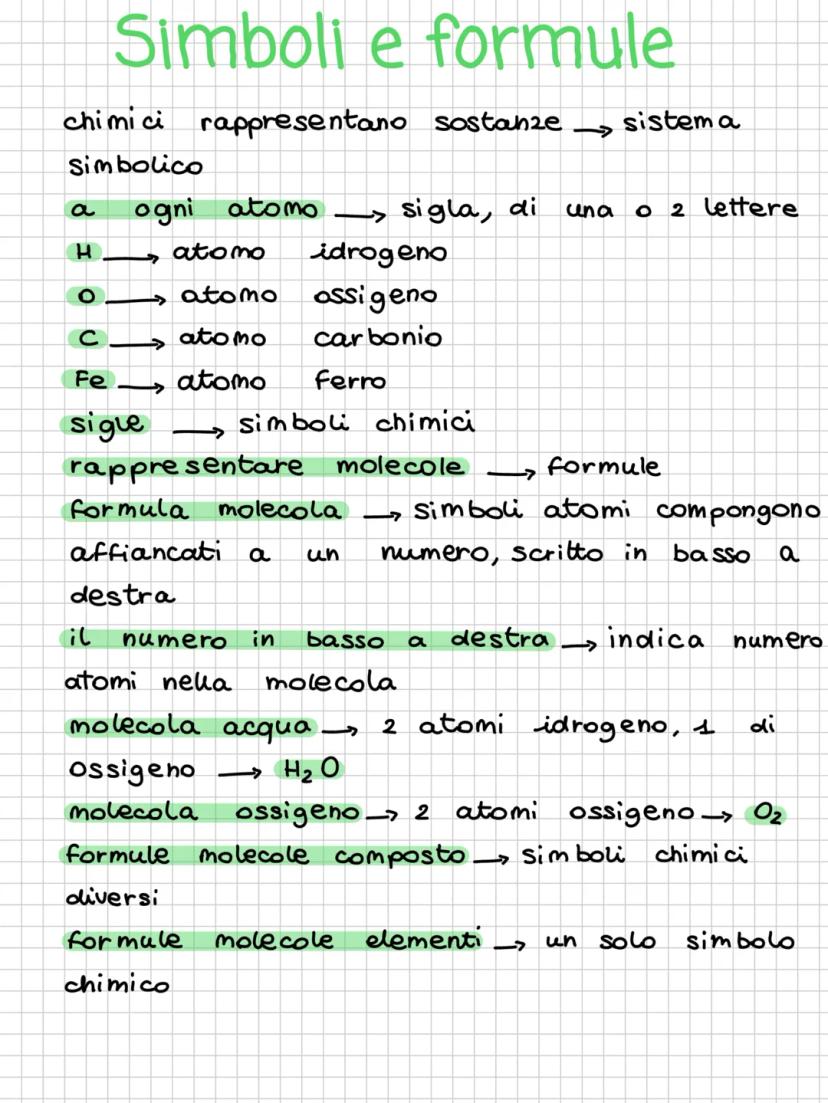 Simboli e formule
chimici rappresentano sostanze → sistema
simbolico
a ogni atomo → sigla, di una o 2 lettere
H → atomo idrogeno
O → atomo ossigeno
C → atomo carbonio
Fe → atomo ferro
sigle → simboli chimici
rappresentare molecole → formule
formula molecola → simboli atomi compongono
affiancati a un numero, scritto in basso a
destra
il numero in basso a destra → indica numero
atomi nella molecola
molecola acqua → 2 atomi idrogeno, 1 di
ossigeno → H₂O
molecola ossigeno → 2 atomi ossigeno → O₂
formule molecole composto → simboli chimici
diversi
formule molecole elementi → un solo simbolo
chimico